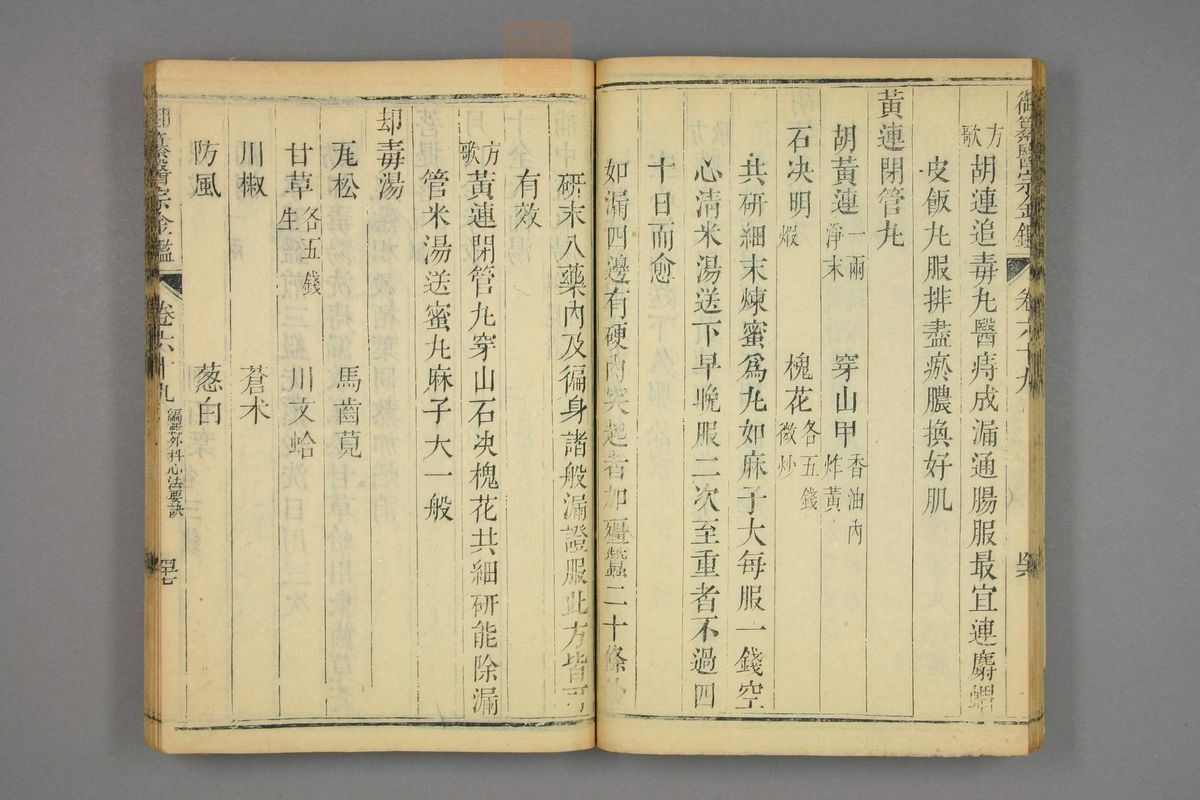 御纂醫宗金鑑 卷六十九
方歌 胡連追毒丸醫痔成漏通腸服最宜連麝蝟
皮飯丸服排盡瘀膿換好肌
黃連閉管丸
胡黃連一兩淨末 穿山甲香油內炸黃
石決明煅 槐花各五錢微炒
共研細末煉蜜爲丸如麻子大每服一錢空
心清米湯送下早晚服二次至重者不過四
十日而愈
如漏四邊有硬肉突起者加殭蠶二十條
研末入藥內及徧身諸般漏證服此方皆可
有效
方歌 黃連閉管丸穿山石决槐花共細研能除漏
管米湯送蜜丸麻子大一般
却毒湯
瓦松 馬齒莧
甘草各五錢生 川文蛤
川椒 蒼术
防風 葱白
御纂醫宗金鑑 卷六十九 編輯外科心法要訣